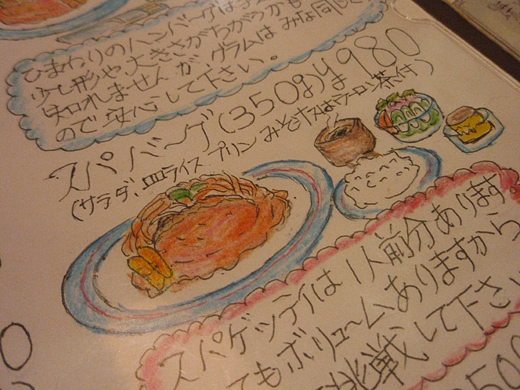 ひまわりのハンバーグは
少し形や大きさがちがうかも
知れませんが、グラムはみな同じ
ので安心して下さい。
スパバーグ(350g)は980
(サラダ、皿ライス、プリン みそ汁又はウーロン茶付)
スパゲッティは1人前分あります
てもボリュームありますから
挑戦して下さい